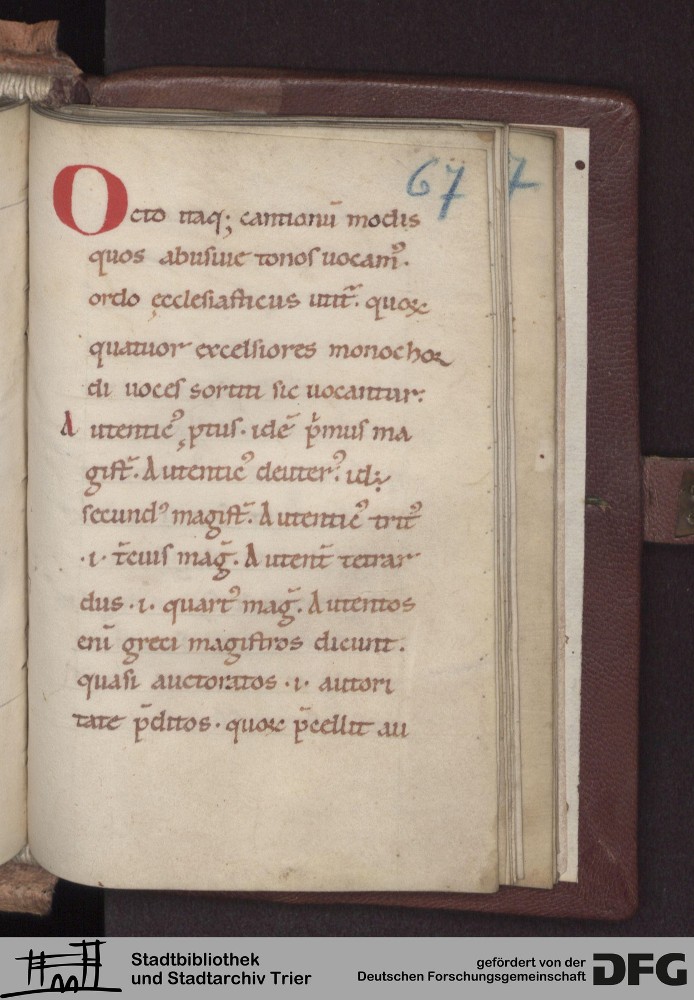 67 7
Octo itaq; cantionū modis
quos abusiue tonos uocam᷒.
ordo ęcclesiasticus utit᷑. quoꝝ
quatuor excelsiores monochor
di uoces sortiti sic uocantur:
Autentic᷒ ꝓtus. idē p̄mus ma
gist᷑. Autentic᷒ deuter᷒. id;
secund᷒ magist᷑. Autentic᷒ trit᷒
.i. t̄cius maḡ. Autent̄ tetrar
dus .i. quart᷒ maḡ. Autentos
enī greci magistros dicunt.
quasi auctoratos .i. autori
tate p̄ditos. quoꝝ p̄cellit au
Stadtbibliothek
und Stadtarchiv Trier
gefördert von der
Deutschen Forschungsgemeinschaft
DFG